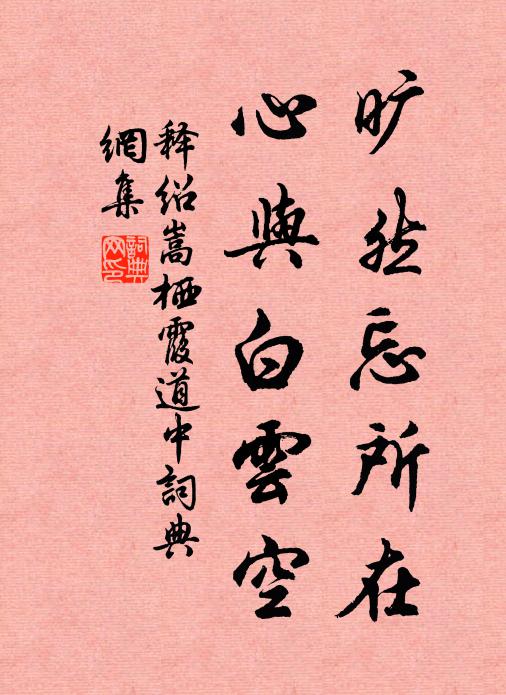 旷然忘所在
心與白雲空
释绍嵩栖霞道中詞典
網集
詞典
网印